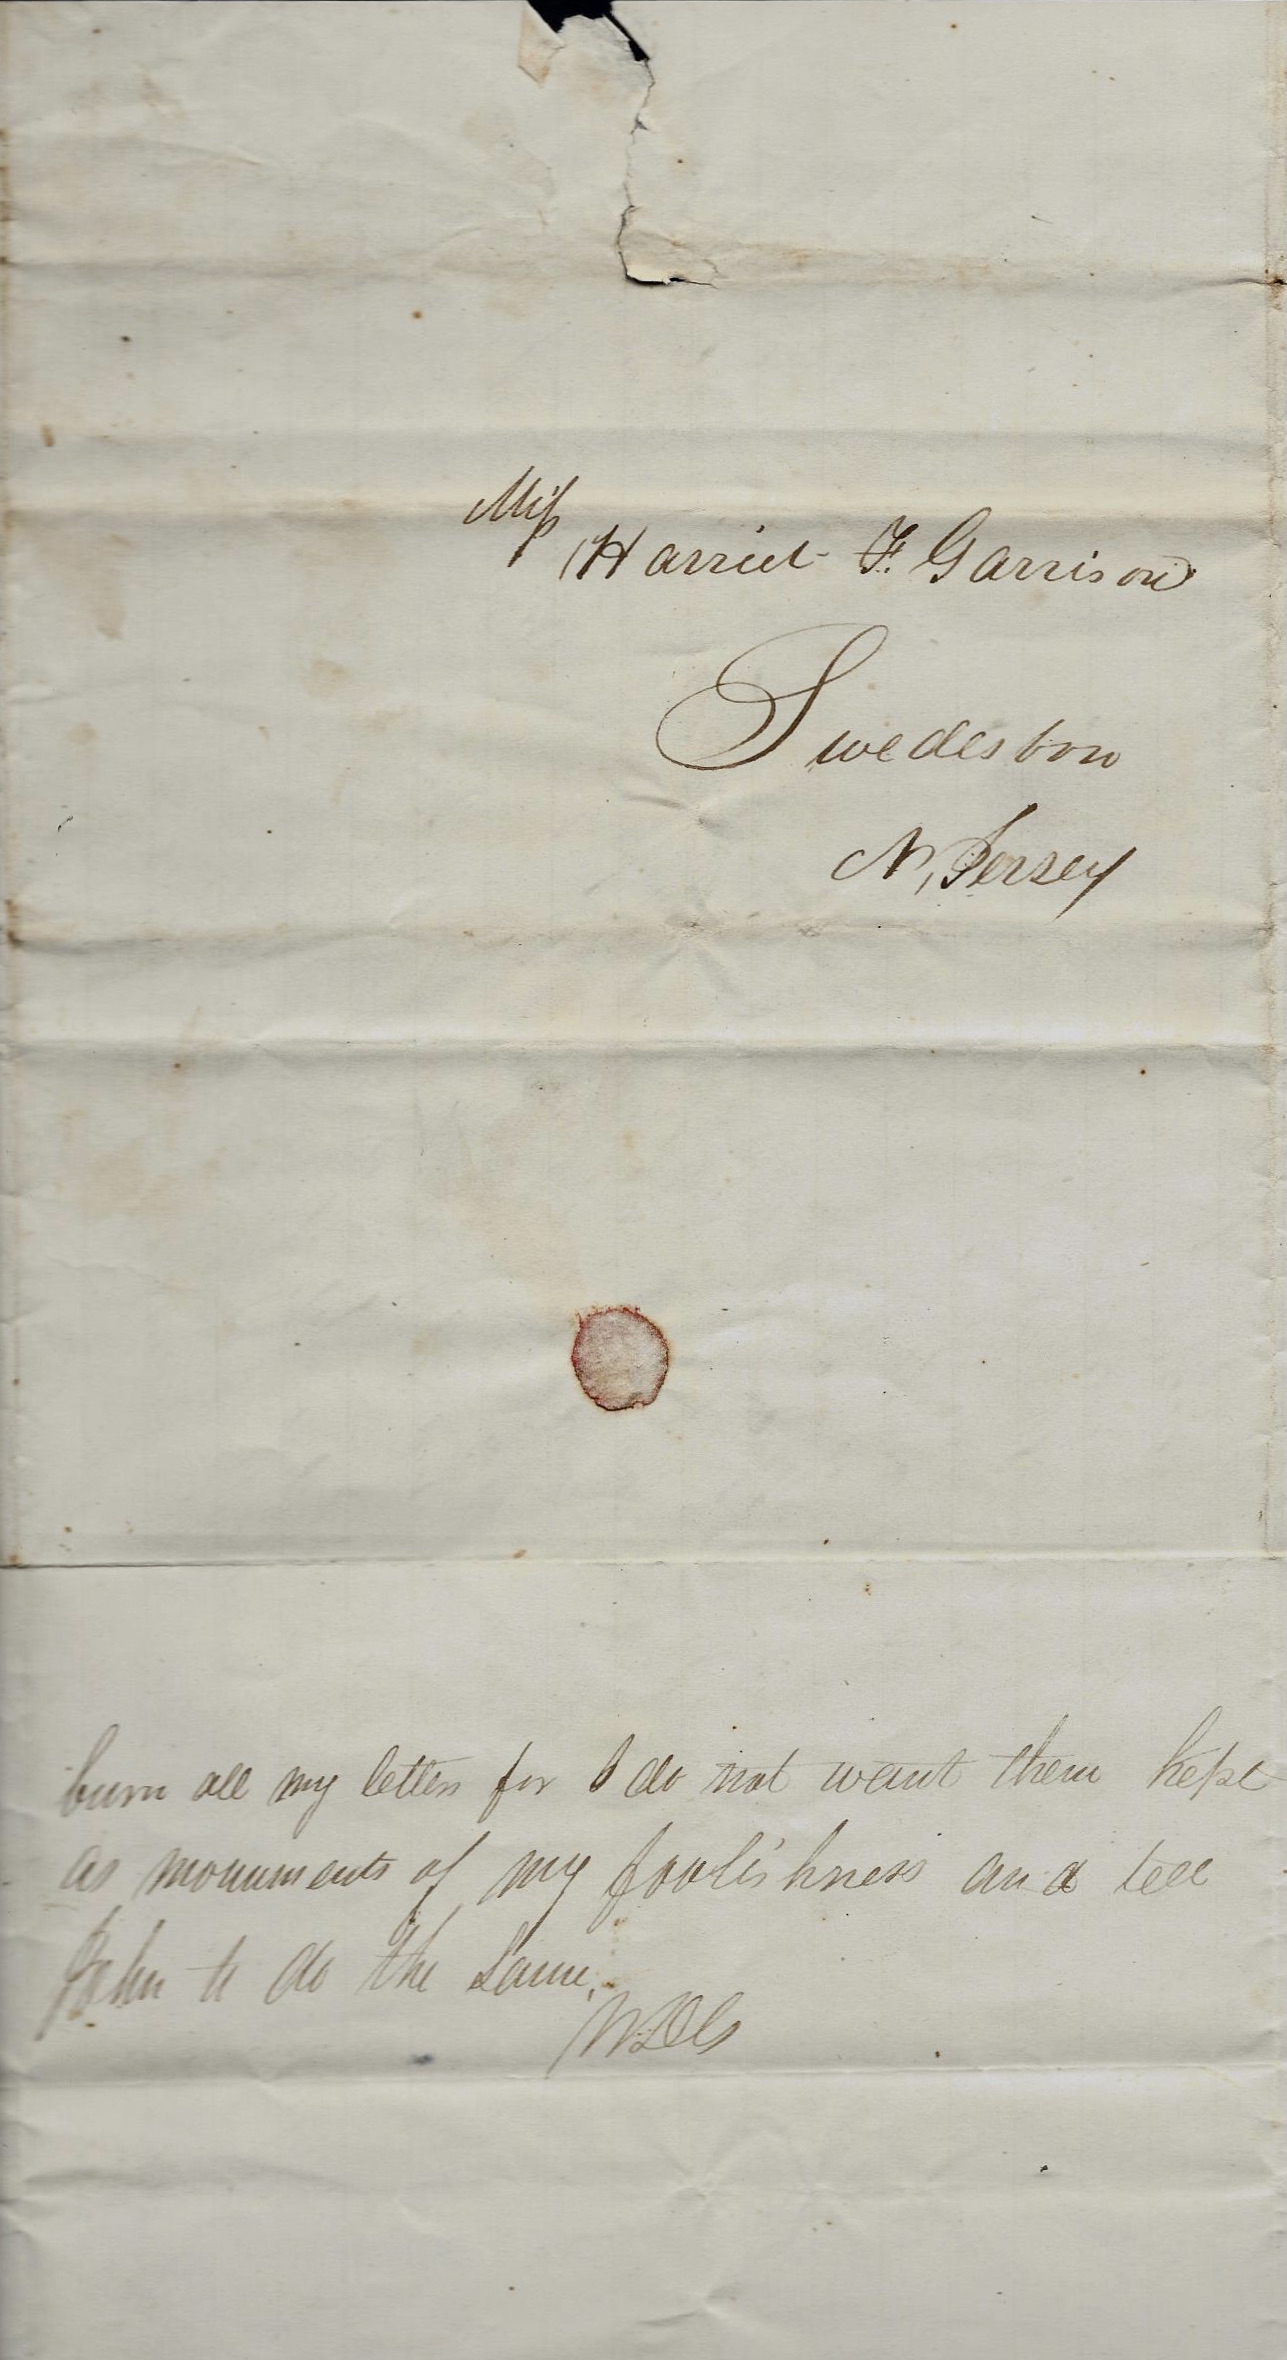 Miss
Harriet F. Garrison
Swedesboro
N, Jersey
burn all my letters for I do not want them kept
as monuments of my foolishness and tell
John to do the Same.